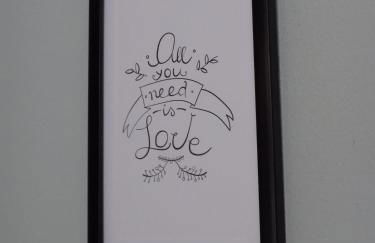 All
you
need
-is-
Love